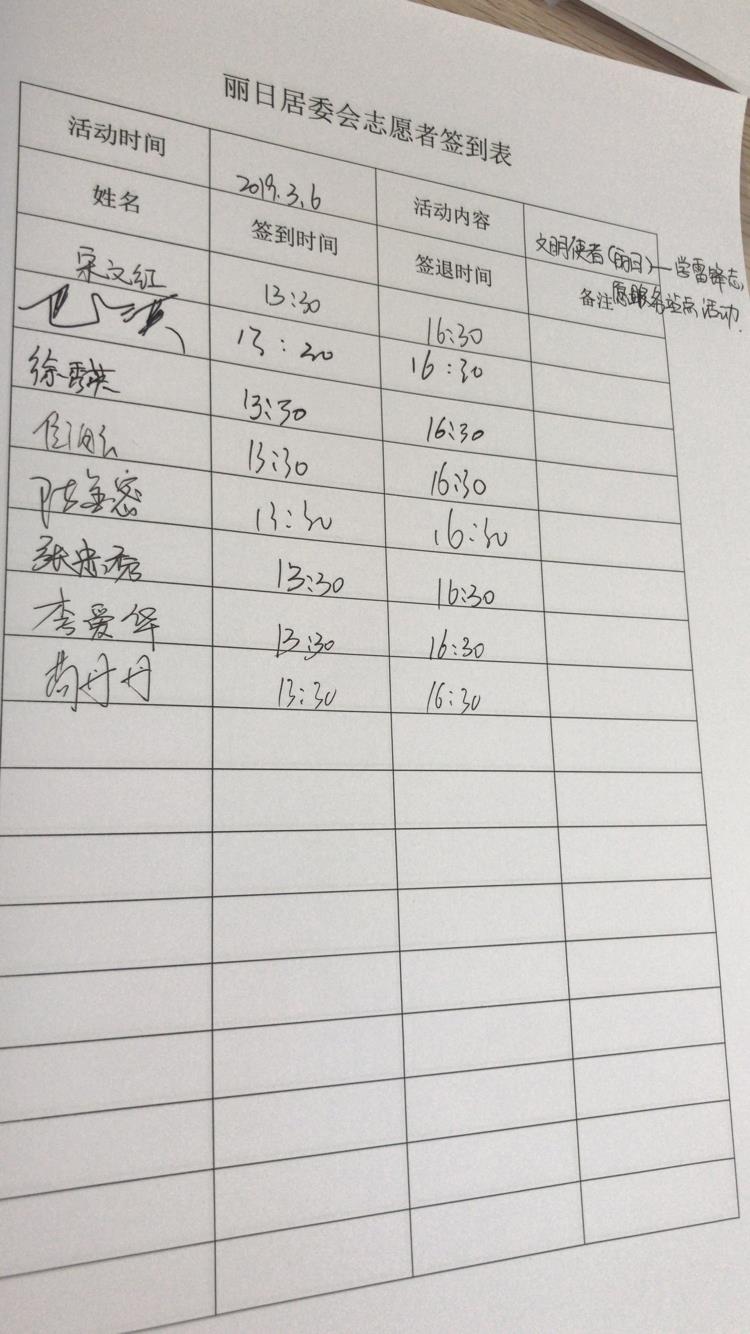 丽日居委会志愿者签到表
活动时间 2019.3.6 活动内容 文明使者(丽日)—学雷锋志愿服务站点活动.
姓名 签到时间 签退时间 备注
宋文红 13:30 16:30
13:30 16:30
徐秀英 13:30 16:30
13:30 16:30
陆金密 13:30 16:30
张宗秀 13:30 16:30
李爱华 13:30 16:30
丹丹 13:30 16:30